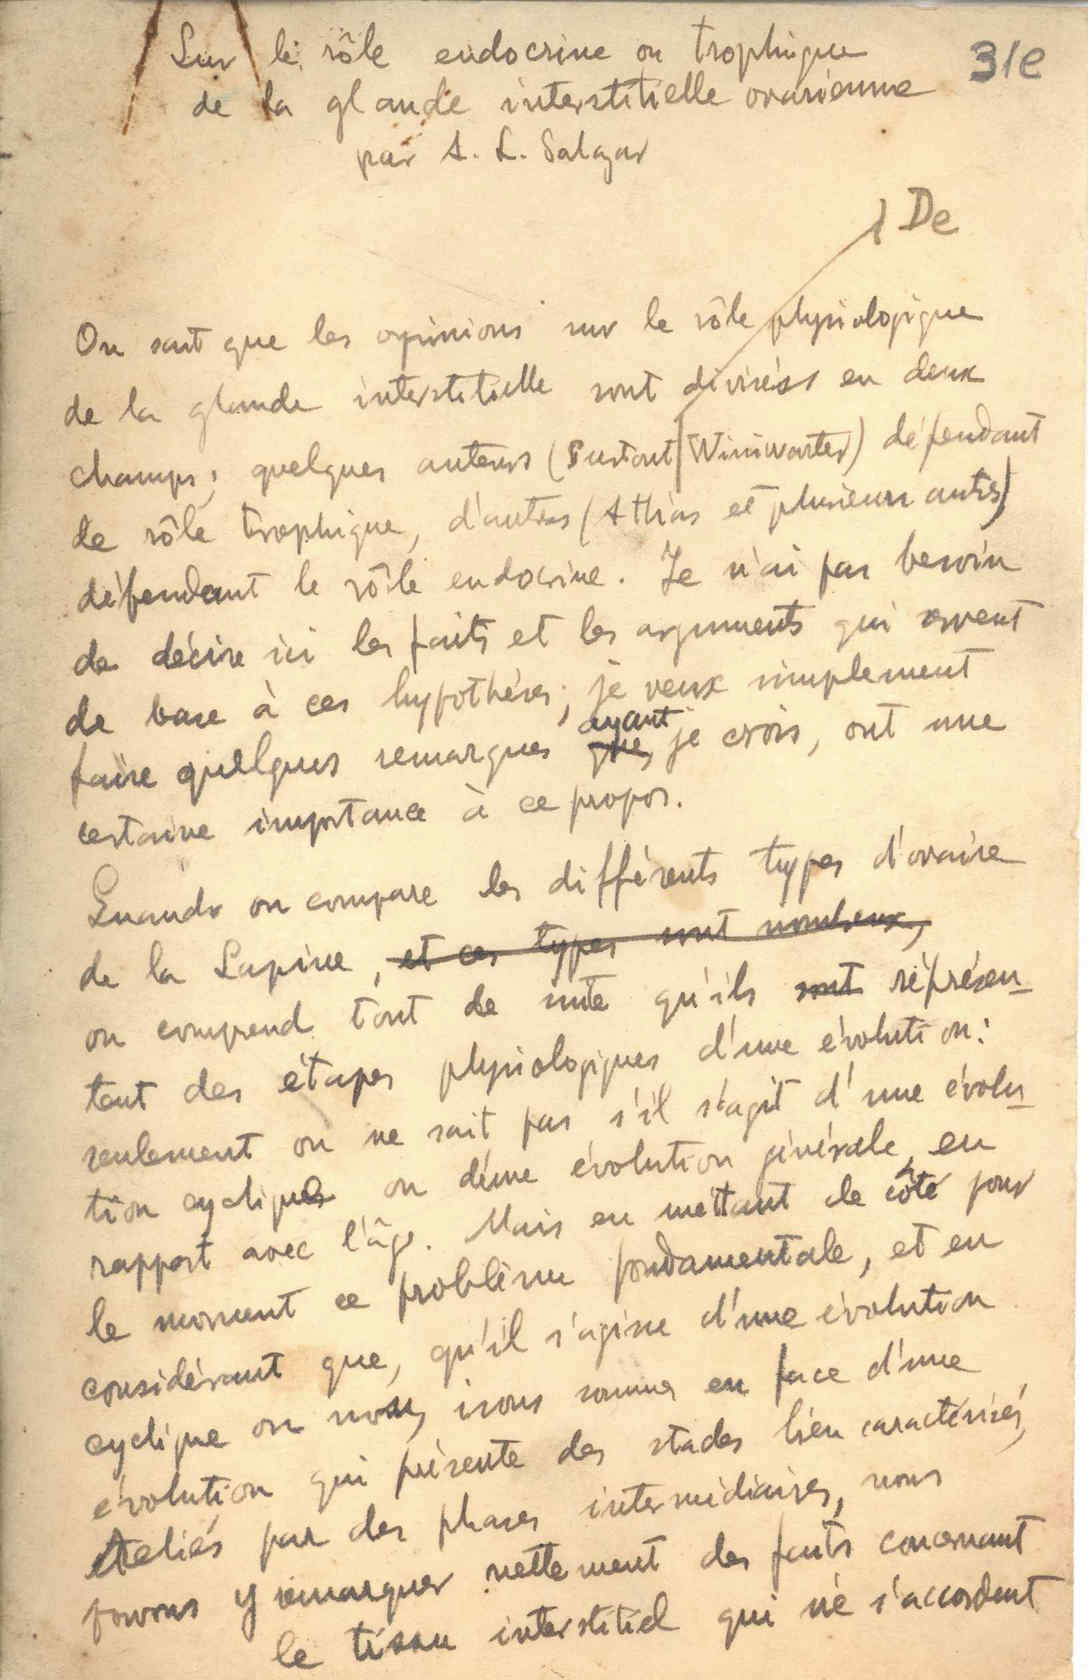 Sur le rôle endocrine ou trophique
31e
de la glande interstitielle ovarienne
par A. L. Salazar
De
On sait que les opinions sur le rôle physiologique
de la glande interstitielle sont divisées en deux
champs; quelques auteurs (surtout Winiwarter) défendant
le rôle trophique, d'autres (Athias et plusieurs autres)
défendant le rôle endocrine. Je n'ai pas besoin
de décrire ici les faits et les arguments qui servent
de base à ces hypothéses; je veux simplement
ayant
faire quelques remarques que, je crois, ont une
certaine importance à ce propos.
Quando on compare les différents types d'ovaire
de la Lapine, et ces types sont nombreux,
on comprend tout de suite qu'ils sont réprésen-
tent des étapes physiologiques d'une évolution:
seulement on ne sait pas s'il s'agit d'une évolu-
tion cyclique ou d'une évolution générale, en
rapport avec l'âge. Mais en mettant de côté pour
le moment ce problème fondamentale, et en
considérant que, qu'il s'agisse d'une évolution
cyclique ou non, nous sommes en face d'une
évolution qui présente des stades bien caractérisés,
reliés par des phases intermédiaires, nous
pouvons y remarquer nettement des faits concernant
le tissu interstitiel qui ne s'accordent